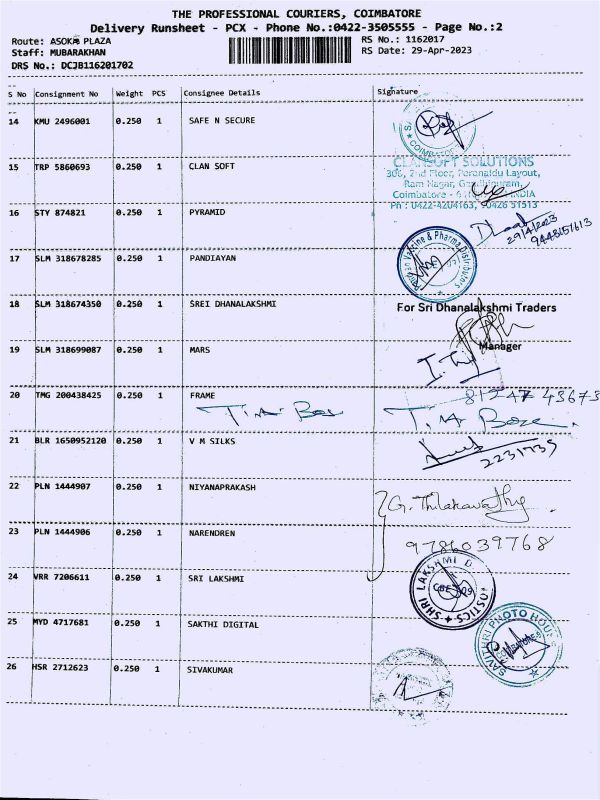 THE PROFESSIONAL COURIERS, COIMBATORE
Delivery Runsheet - PCX - Phone No.:0422-3505555 - Page No.:2
Route: ASOKA PLAZA
RS No.: 1162017
Staff: MUBARAKHAN
RS Date: 29-Apr-2023
DRS No.: DCJB116201702
S No Consignment No Weight PCS Consignee Details Signature
14 KMU 2496001 0.250 1 SAFE N SECURE
COIMBATORE
15 TRP 5860693 0.250 1 CLAN SOFT
CLANSOFT SOLUTIONS
306, 2nd Floor, Peranaidu Layout,
Ram Nagar, Gandhipuram,
Coimbatore - INDIA
Ph : 0422-4204163, 90426 51513
16 STY 874821 0.250 1 PYRAMID
29/4/2023
17 SLM 318678285 0.250 1 PANDIAYAN
Vaccine & Pharma Distributors
18 SLM 318674350 0.250 1 SREI DHANALAKSHMI
For Sri Dhanalakshmi Traders
Manager
19 SLM 318699087 0.250 1 MARS
20 TMG 200438425 0.250 1 FRAME
81247 43673
21 BLR 1650952120 0.250 1 V M SILKS
2231739
22 PLN 1444907 0.250 1 NIYANAPRAKASH
G. Thilakavathy.
23 PLN 1444906 0.250 1 NARENDREN
9786039768
24 VRR 7206611 0.250 1 SRI LAKSHMI
SHRI LAKSHMI
25 MYD 4717681 0.250 1 SAKTHI DIGITAL
SAVITHRI PHOTO HOUSE
26 HSR 2712623 0.250 1 SIVAKUMAR